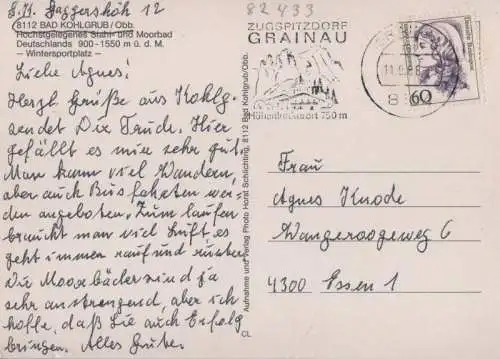 8112 BAD KOHLGRUB / Obb.
Höchstgelegenes Stahl- und Moorbad
Deutschlands 900 - 1550 m ü. d. M.
– Wintersportplatz –
Liebe Agnes!
Herzl. Grüße aus Kohlg.
sendet Dir Trude. Hier
gefällt es mir sehr gut.
Man kann viel Wandern,
aber auch Busfahrten wer-
den angeboten. Zum laufen
braucht man viel Luft, es
geht immer rauf und runter
Die Moorbäder sind ja
sehr anstrengend, aber ich
hoffe, daß Sie auch Erfolg
bringen. Alles Gute.
Aufnahme und Verlag Photo Horst Schlichting, 8112 Bad Kohlgrub/Obb.
CL
82 433
ZUGSPITZDORF
GRAINAU
Höhenluftkurort 750 m
60
Frau
Agnes Knode
Wangeroogeweg 6
4300 Essen 1